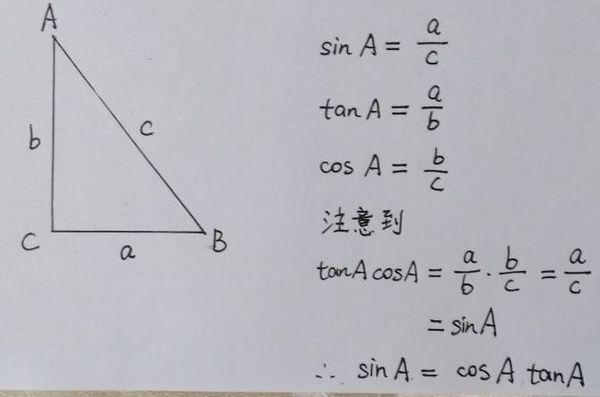 A
b
c
C
a
B
sin A = a/c
tan A = a/b
cos A = b/c
注意到
tanA cosA = a/b · b/c = a/c
= sinA
∴ sinA = cosA tanA